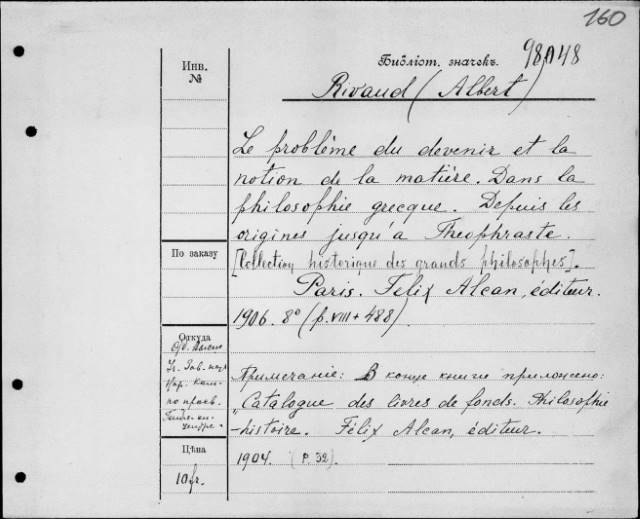 160
Инв.
№
Библіот. значекъ.
98,048
Rivaud (Albert)
Le problème du devenir et la
notion de la matière. Dans la
philosophie grecque. Depuis les
origines jusqu'à Théophraste.
[Collection historique des grands philosophes].
Paris. Felix Alcan, éditeur.
1906. 8° (p. VIII + 488)
По заказу
Откуда
Примечаніе: В конце книги приложено:
"Catalogue des livres de fonds. Philosophie
-histoire. Félix Alcan, éditeur.
1904. (p. 32).
Цѣна
10 fr.